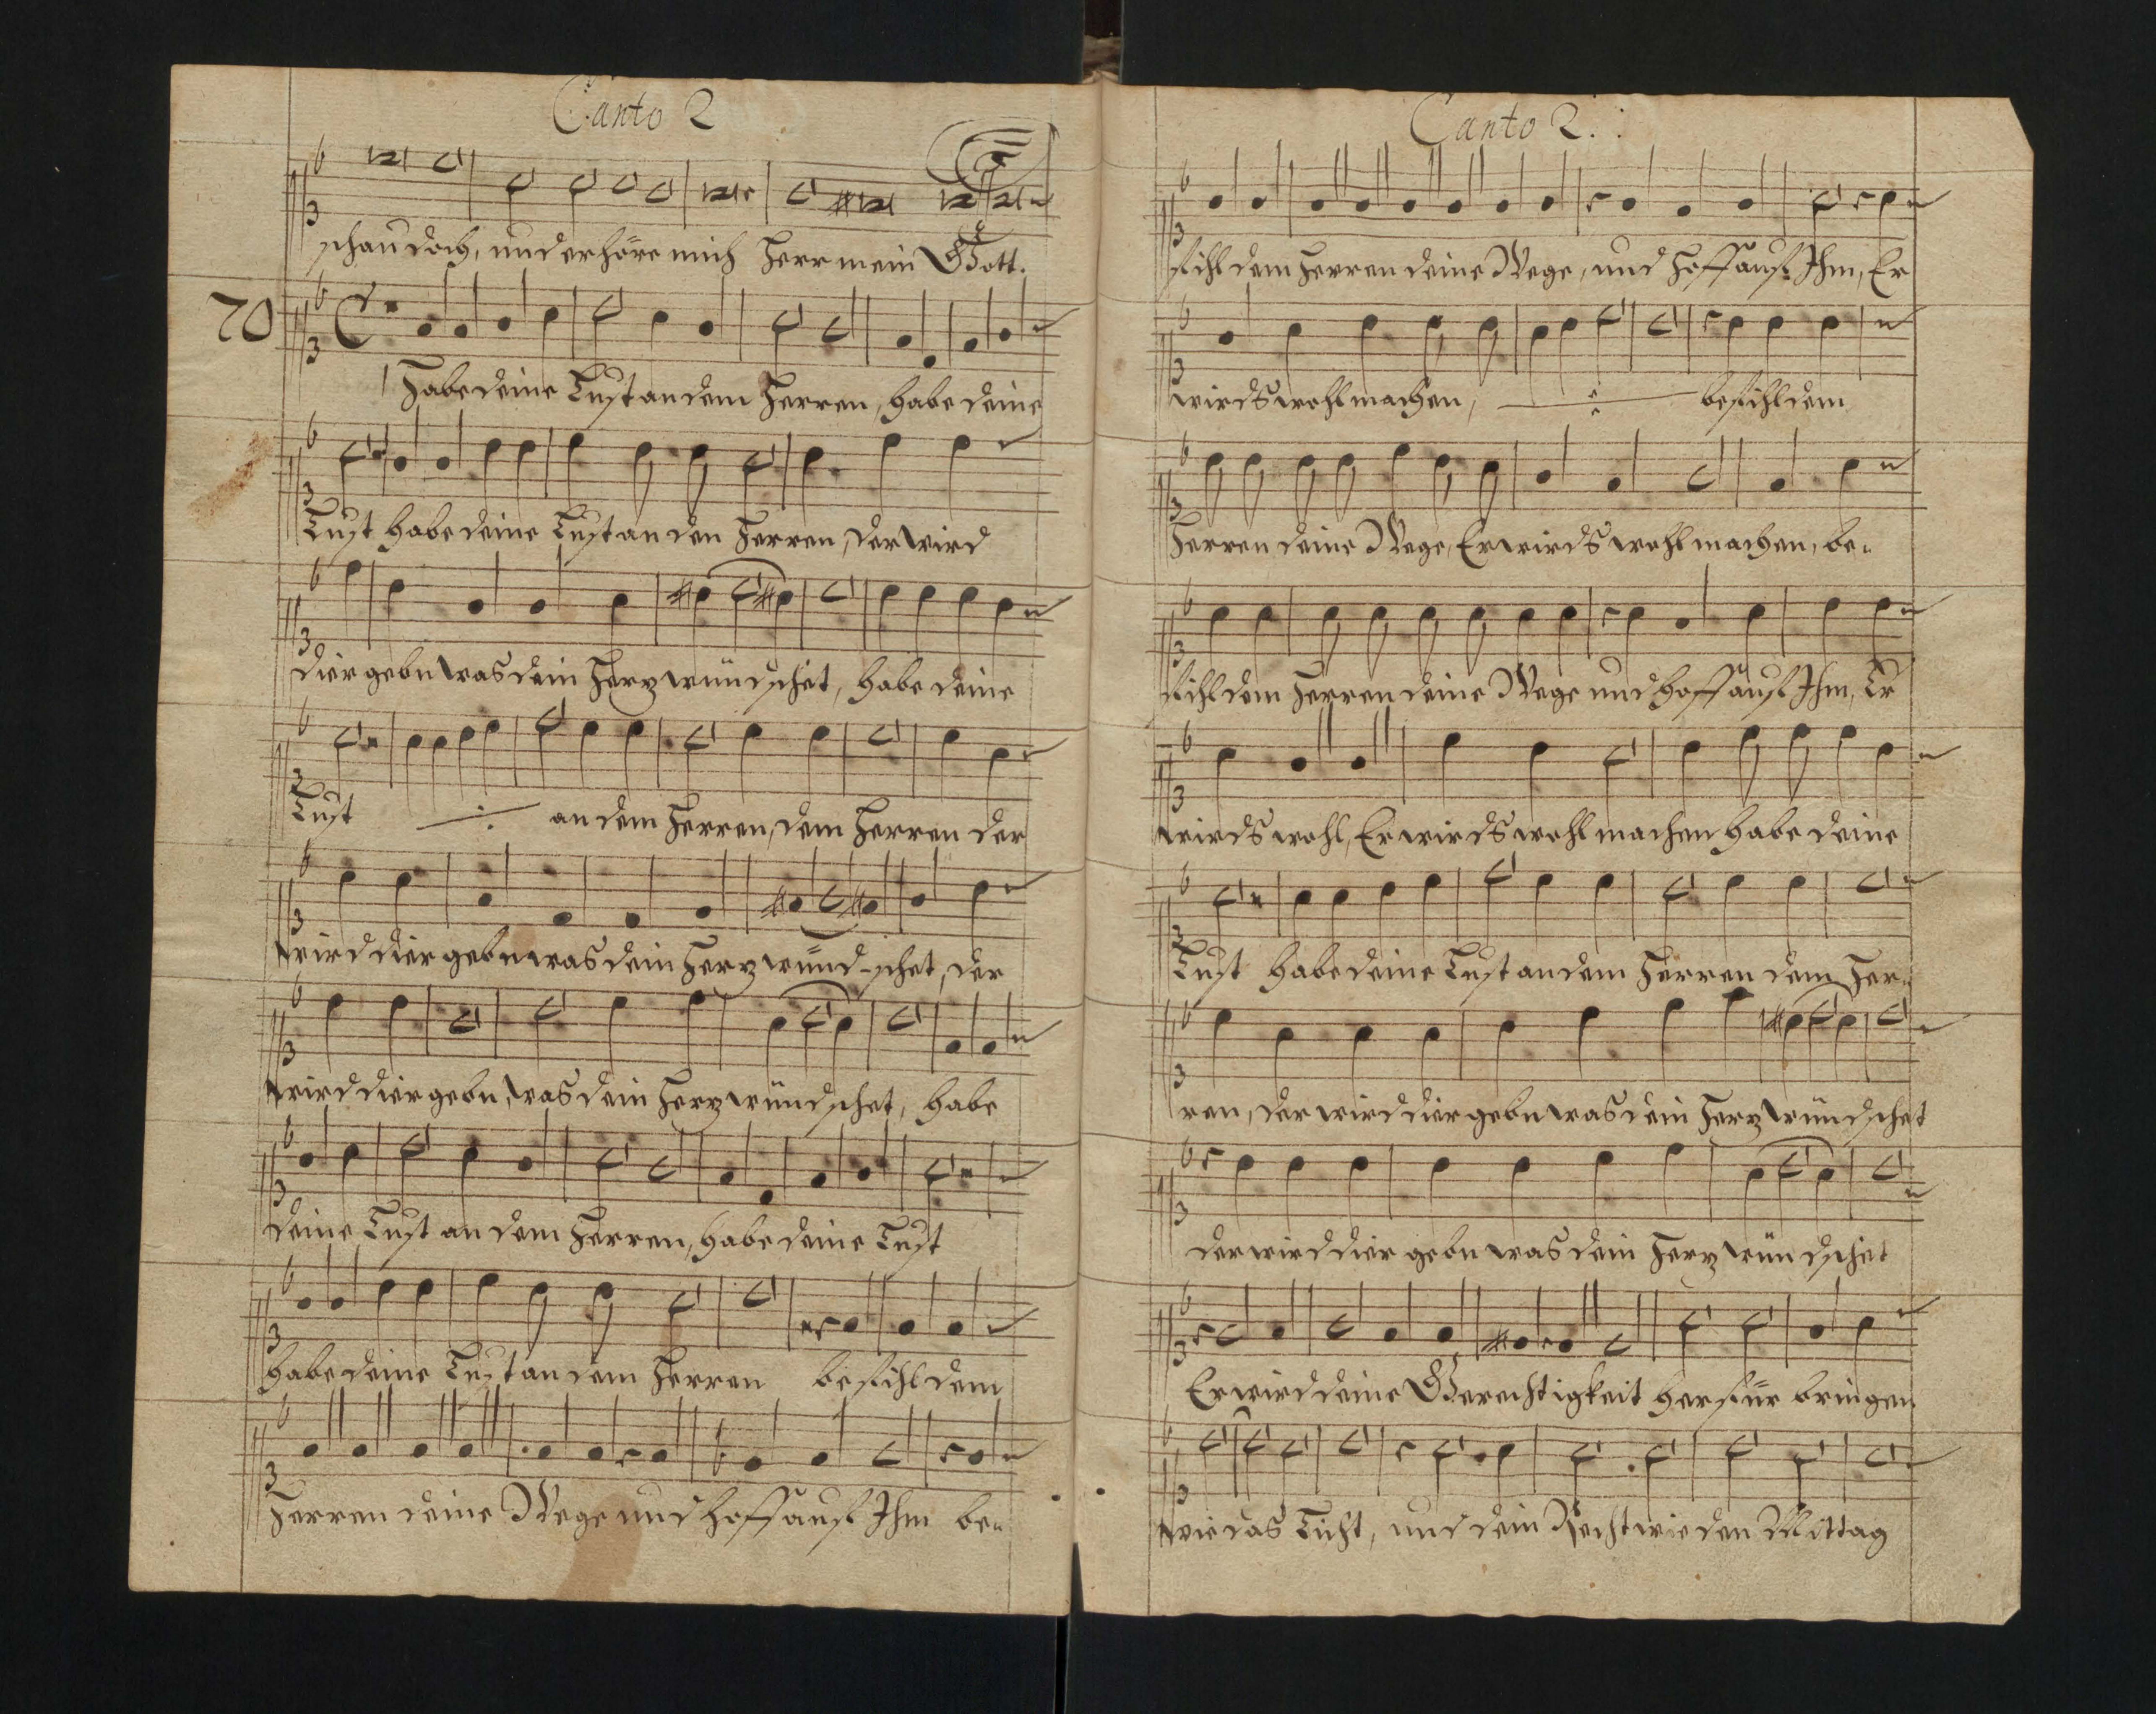 Canto 2
schau doch, und erhöre mich Herr mein Gott.
70
Habe deine Lust an dem Herren, habe deine
Lust habe deine Lust an den Herren, der wird
dier gebn was dein Herz wündschet, habe deine
Lust ./. an dem Herren, dem Herren der
wird dier gebn was dein Herz wünd-schet, der
wird dier gebn, was dein Herz wündschet, habe
deine Lust an dem Herren, habe deine Lust
habe deine Lust an dem Herren befihl dem
Herren deine Wege und hoff auf Ihm be=
Canto 2.
fihl dem Herren deine Wege, und hoff auf Ihm, Er
wirds wohl machen, ./. befihl dem
Herren deine Wege, Er wirds wohl machen, be=
fihl dem Herren deine Wege und hoff auf Ihm, Er
wirds wohl, Er wirds wohl machen habe deine
Lust habe deine Lust an dem Herren dem Her=
ren, der wird dier gebn was dein Herz wündschet
der wird dier gebn was dein Herz wündschet
Er wird deine Gerechtigkeit herfür bringen
wie das Licht, und dein Recht wie den Mittag